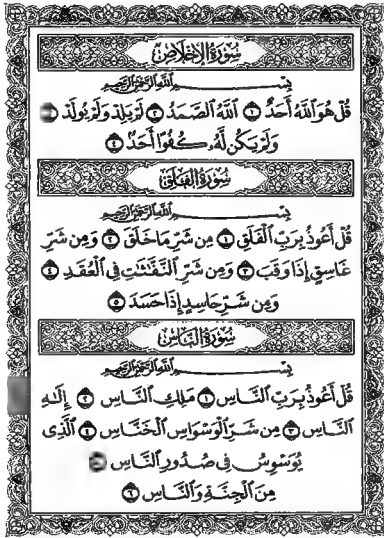 سُورَةُ الإِخْلَاصِ
بِسْمِ اللَّهِ الرَّحْمَٰنِ الرَّحِيمِ
قُلْ هُوَ اللَّهُ أَحَدٌ ١ اللَّهُ الصَّمَدُ ٢ لَمْ يَلِدْ وَلَمْ يُولَدْ
وَلَمْ يَكُن لَّهُ كُفُوًا أَحَدٌ ٤
سُورَةُ الْفَلَقِ
بِسْمِ اللَّهِ الرَّحْمَٰنِ الرَّحِيمِ
قُلْ أَعُوذُ بِرَبِّ الْفَلَقِ ١ مِن شَرِّ مَا خَلَقَ ٢ وَمِن شَرِّ
غَاسِقٍ إِذَا وَقَبَ ٣ وَمِن شَرِّ النَّفَّٰثَٰتِ فِي الْعُقَدِ ٤
وَمِن شَرِّ حَاسِدٍ إِذَا حَسَدَ ٥
سُورَةُ النَّاسِ
بِسْمِ اللَّهِ الرَّحْمَٰنِ الرَّحِيمِ
قُلْ أَعُوذُ بِرَبِّ النَّاسِ ١ مَلِكِ النَّاسِ ٢ إِلَٰهِ
النَّاسِ ٣ مِن شَرِّ الْوَسْوَاسِ الْخَنَّاسِ ٤ الَّذِي
يُوَسْوِسُ فِي صُدُورِ النَّاسِ
مِنَ الْجِنَّةِ وَالنَّاسِ ٦